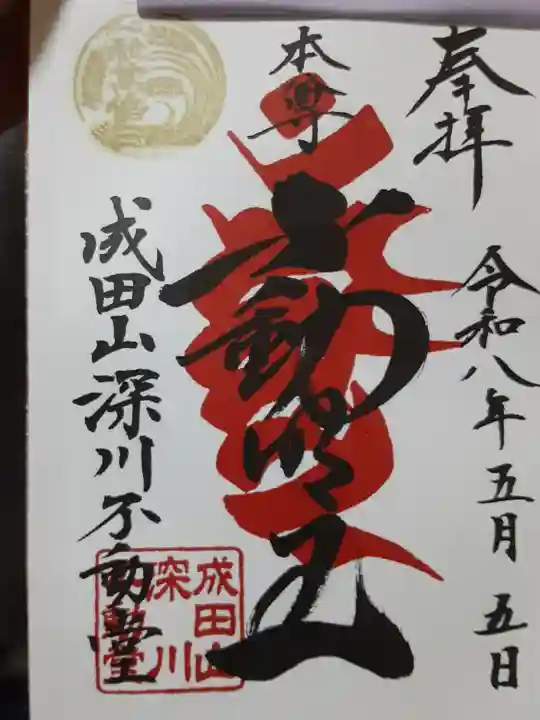 奉拝
令和八年五月五日
本尊
不動明王
成田山深川不動堂
成田山
深川